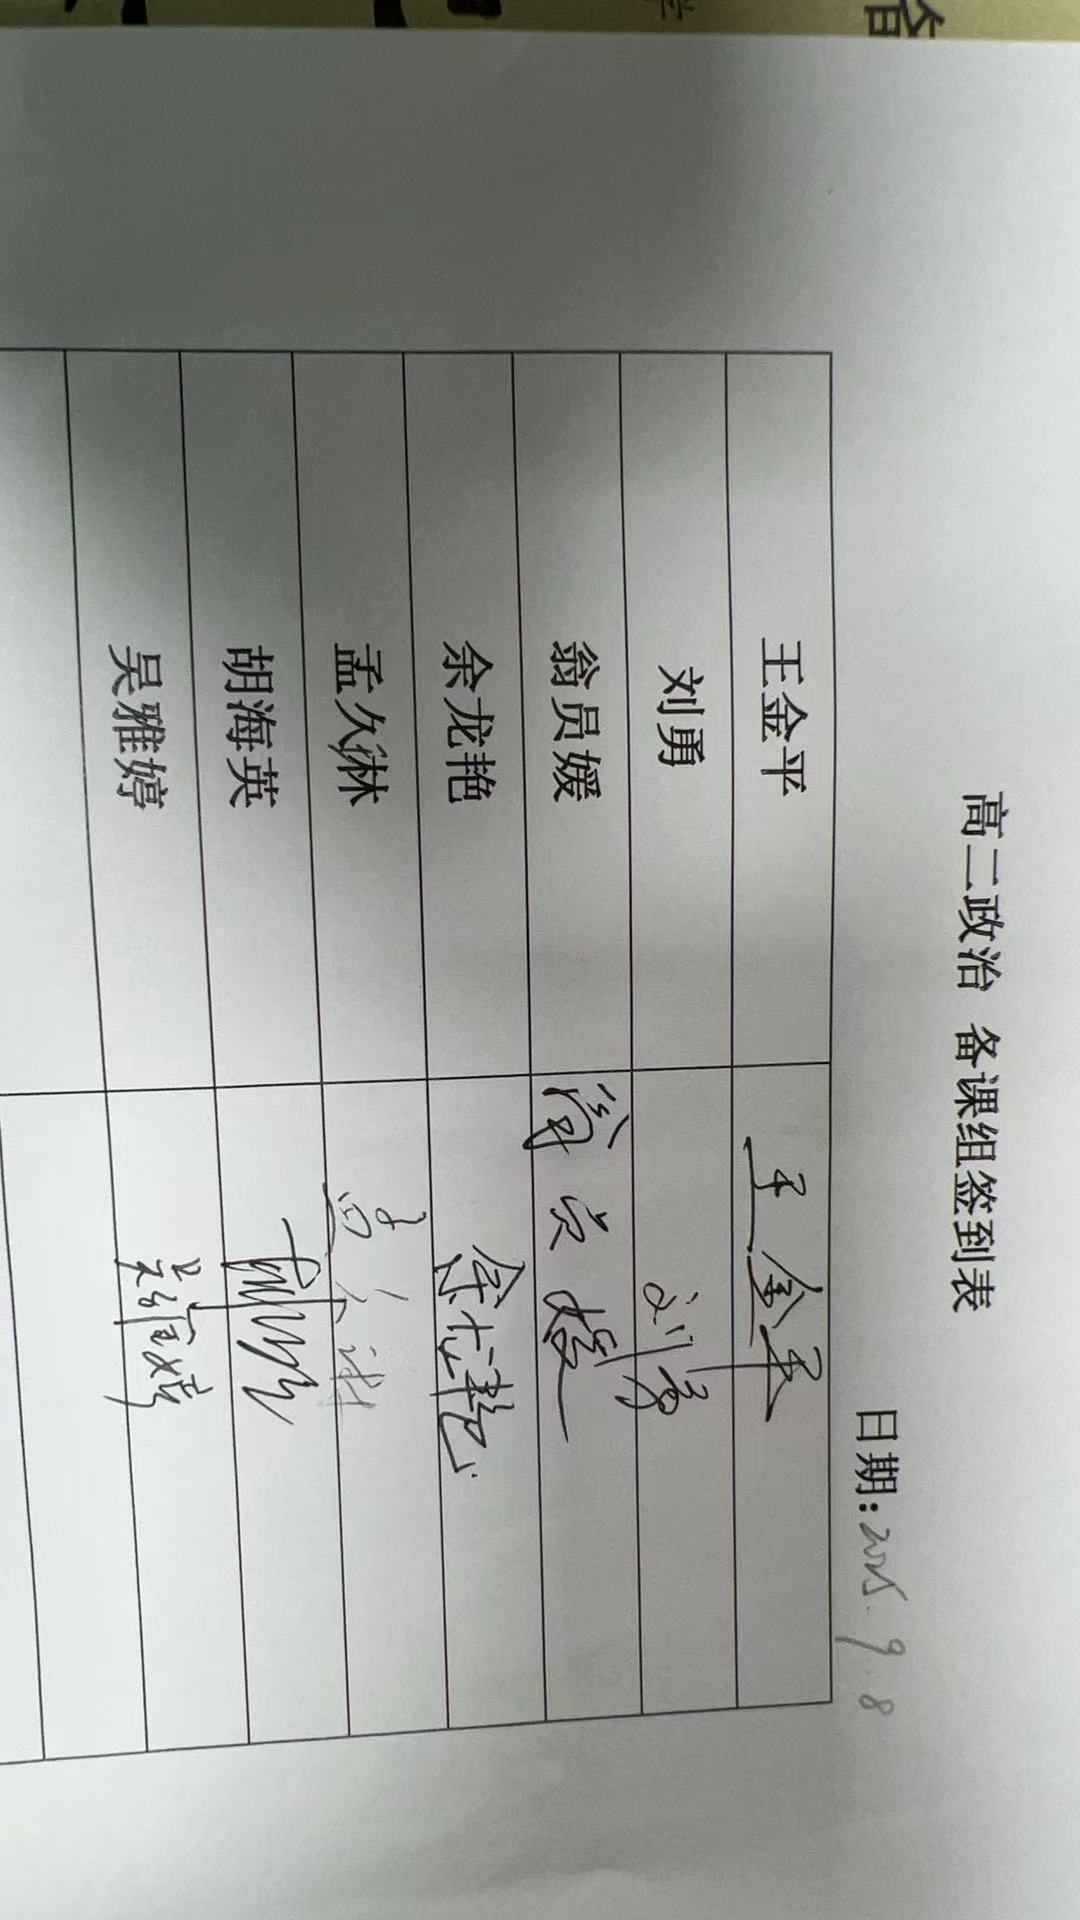 高二政治 备课组签到表
日期: 2025.9.8
王金平 王金平
刘勇 刘勇
翁员媛 翁员媛
余龙艳 余龙艳
孟久淋 孟久淋
胡海英
吴雅婷 吴雅婷